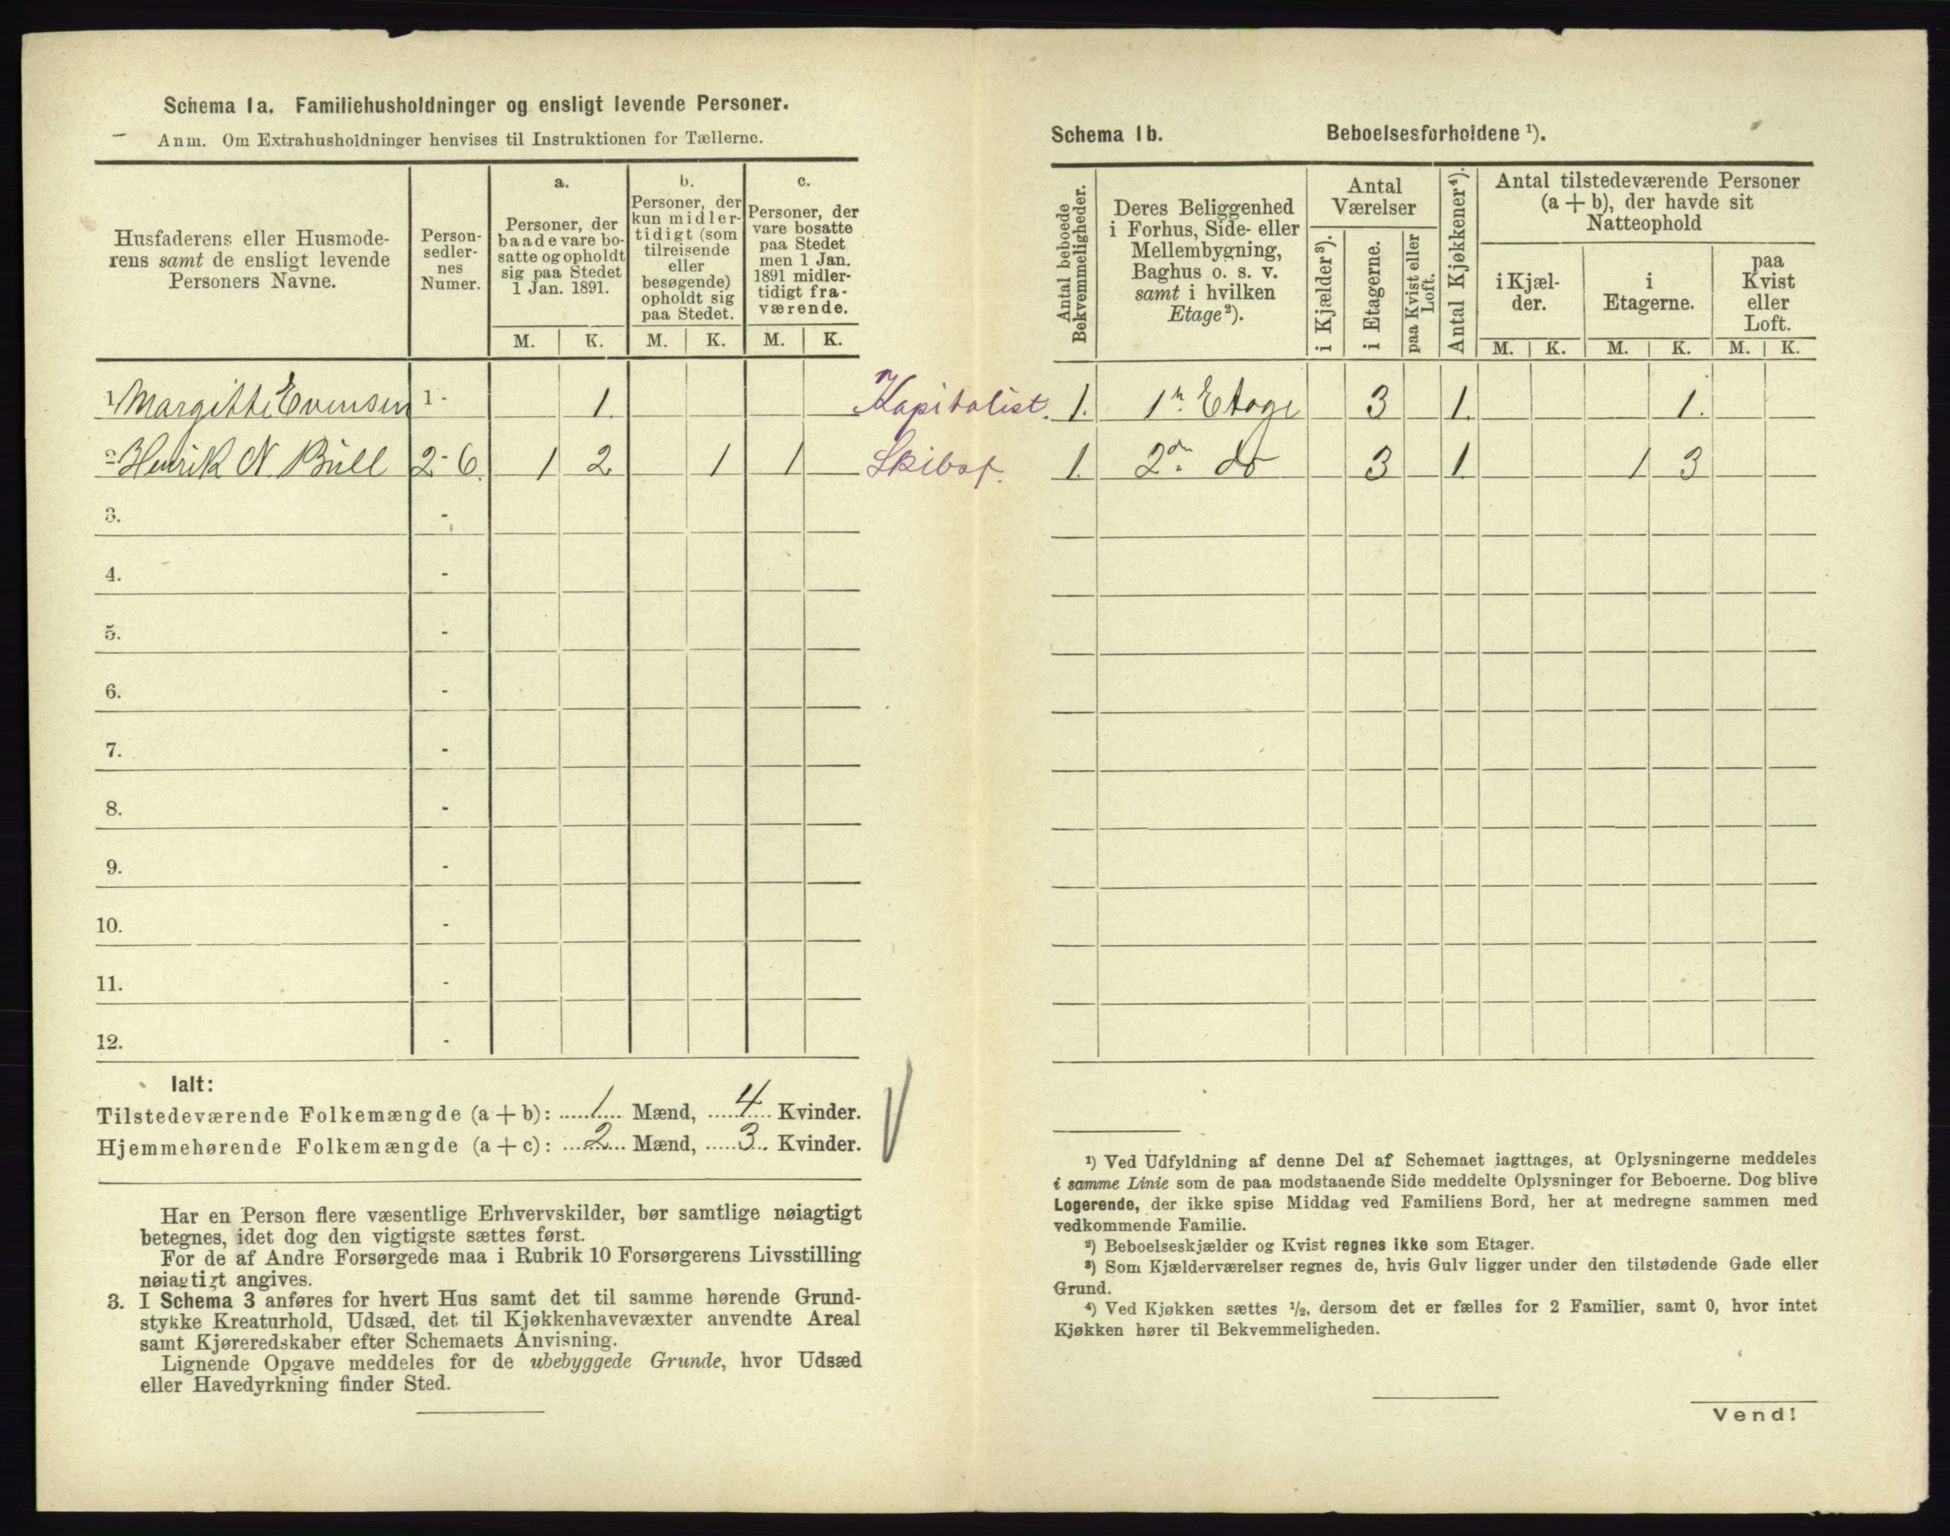 Schema 1a. Familiehusholdninger og ensligt levende Personer.
Anm. Om Extrahusholdninger henvises til Instruktionen for Tællerne.
Husfaderens eller Husmode-
rens samt de ensligt levende
Personers Navne.
Person-
sedler-
nes
Numer.
a.
Personer, der
baade vare bo-
satte og opholdt
sig paa Stedet
1 Jan. 1891.
b.
Personer, der
kun midler-
tidigt (som
tilreisende
eller
besøgende)
opholdt sig
paa Stedet.
c.
Personer, der
vare bosatte
paa Stedet
men 1 Jan.
1891 midler-
tidigt fra-
værende.
M. K. M. K. M. K.
1 Margitte Evensen 1 - 1. Kapitalist.
2 Henrik N. Bull 2 - 6. 1 2 1 1 Skibsf.
3. -
4. -
5. -
6. -
7. -
8. -
9. -
10. -
11. -
12. -
Ialt:
Tilstedeværende Folkemængde (a + b): 1 Mænd, 4 Kvinder.
Hjemmehørende Folkemængde (a + c): 2 Mænd, 3 Kvinder.
Har en Person flere væsentlige Erhvervskilder, bør samtlige nøiagtigt
betegnes, idet dog den vigtigste sættes først.
For de af Andre Forsørgede maa i Rubrik 10 Forsørgerens Livsstilling
nøiagtigt angives.
3. I Schema 3 anføres for hvert Hus samt det til samme hørende Grund-
stykke Kreaturhold, Udsæd, det til Kjøkkenhavevæxter anvendte Areal
samt Kjøreredskaber efter Schemaets Anvisning.
Lignende Opgave meddeles for de ubebyggede Grunde, hvor Udsæd
eller Havedyrkning finder Sted.
Schema 1b. Beboelsesforholdene ¹).
Antal beboede
Bekvemmeligheder.
Deres Beliggenhed
i Forhus, Side- eller
Mellembygning,
Baghus o. s. v.
samt i hvilken
Etage²).
Antal
Værelser
i Kjælder³).
i Etagerne.
paa Kvist eller
Loft.
Antal Kjøkkener⁴).
Antal tilstedeværende Personer
(a + b), der havde sit
Natteophold
i Kjæl-
der.
i
Etagerne.
paa
Kvist
eller
Loft.
M. K. M. K. M. K.
1. 1ste Etage 3 1. 1.
1. 2den do 3 1 1 3
¹) Ved Udfyldning af denne Del af Schemaet iagttages, at Oplysningerne meddeles
i samme Linie som de paa modstaaende Side meddelte Oplysninger for Beboerne. Dog blive
Logerende, der ikke spise Middag ved Familiens Bord, her at medregne sammen med
vedkommende Familie.
²) Beboelseskjælder og Kvist regnes ikke som Etager.
³) Som Kjælderværelser regnes de, hvis Gulv ligger under den tilstødende Gade eller
Grund.
⁴) Ved Kjøkken sættes ½, dersom det er fælles for 2 Familier, samt 0, hvor intet
Kjøkken hører til Bekvemmeligheden.
Vend!